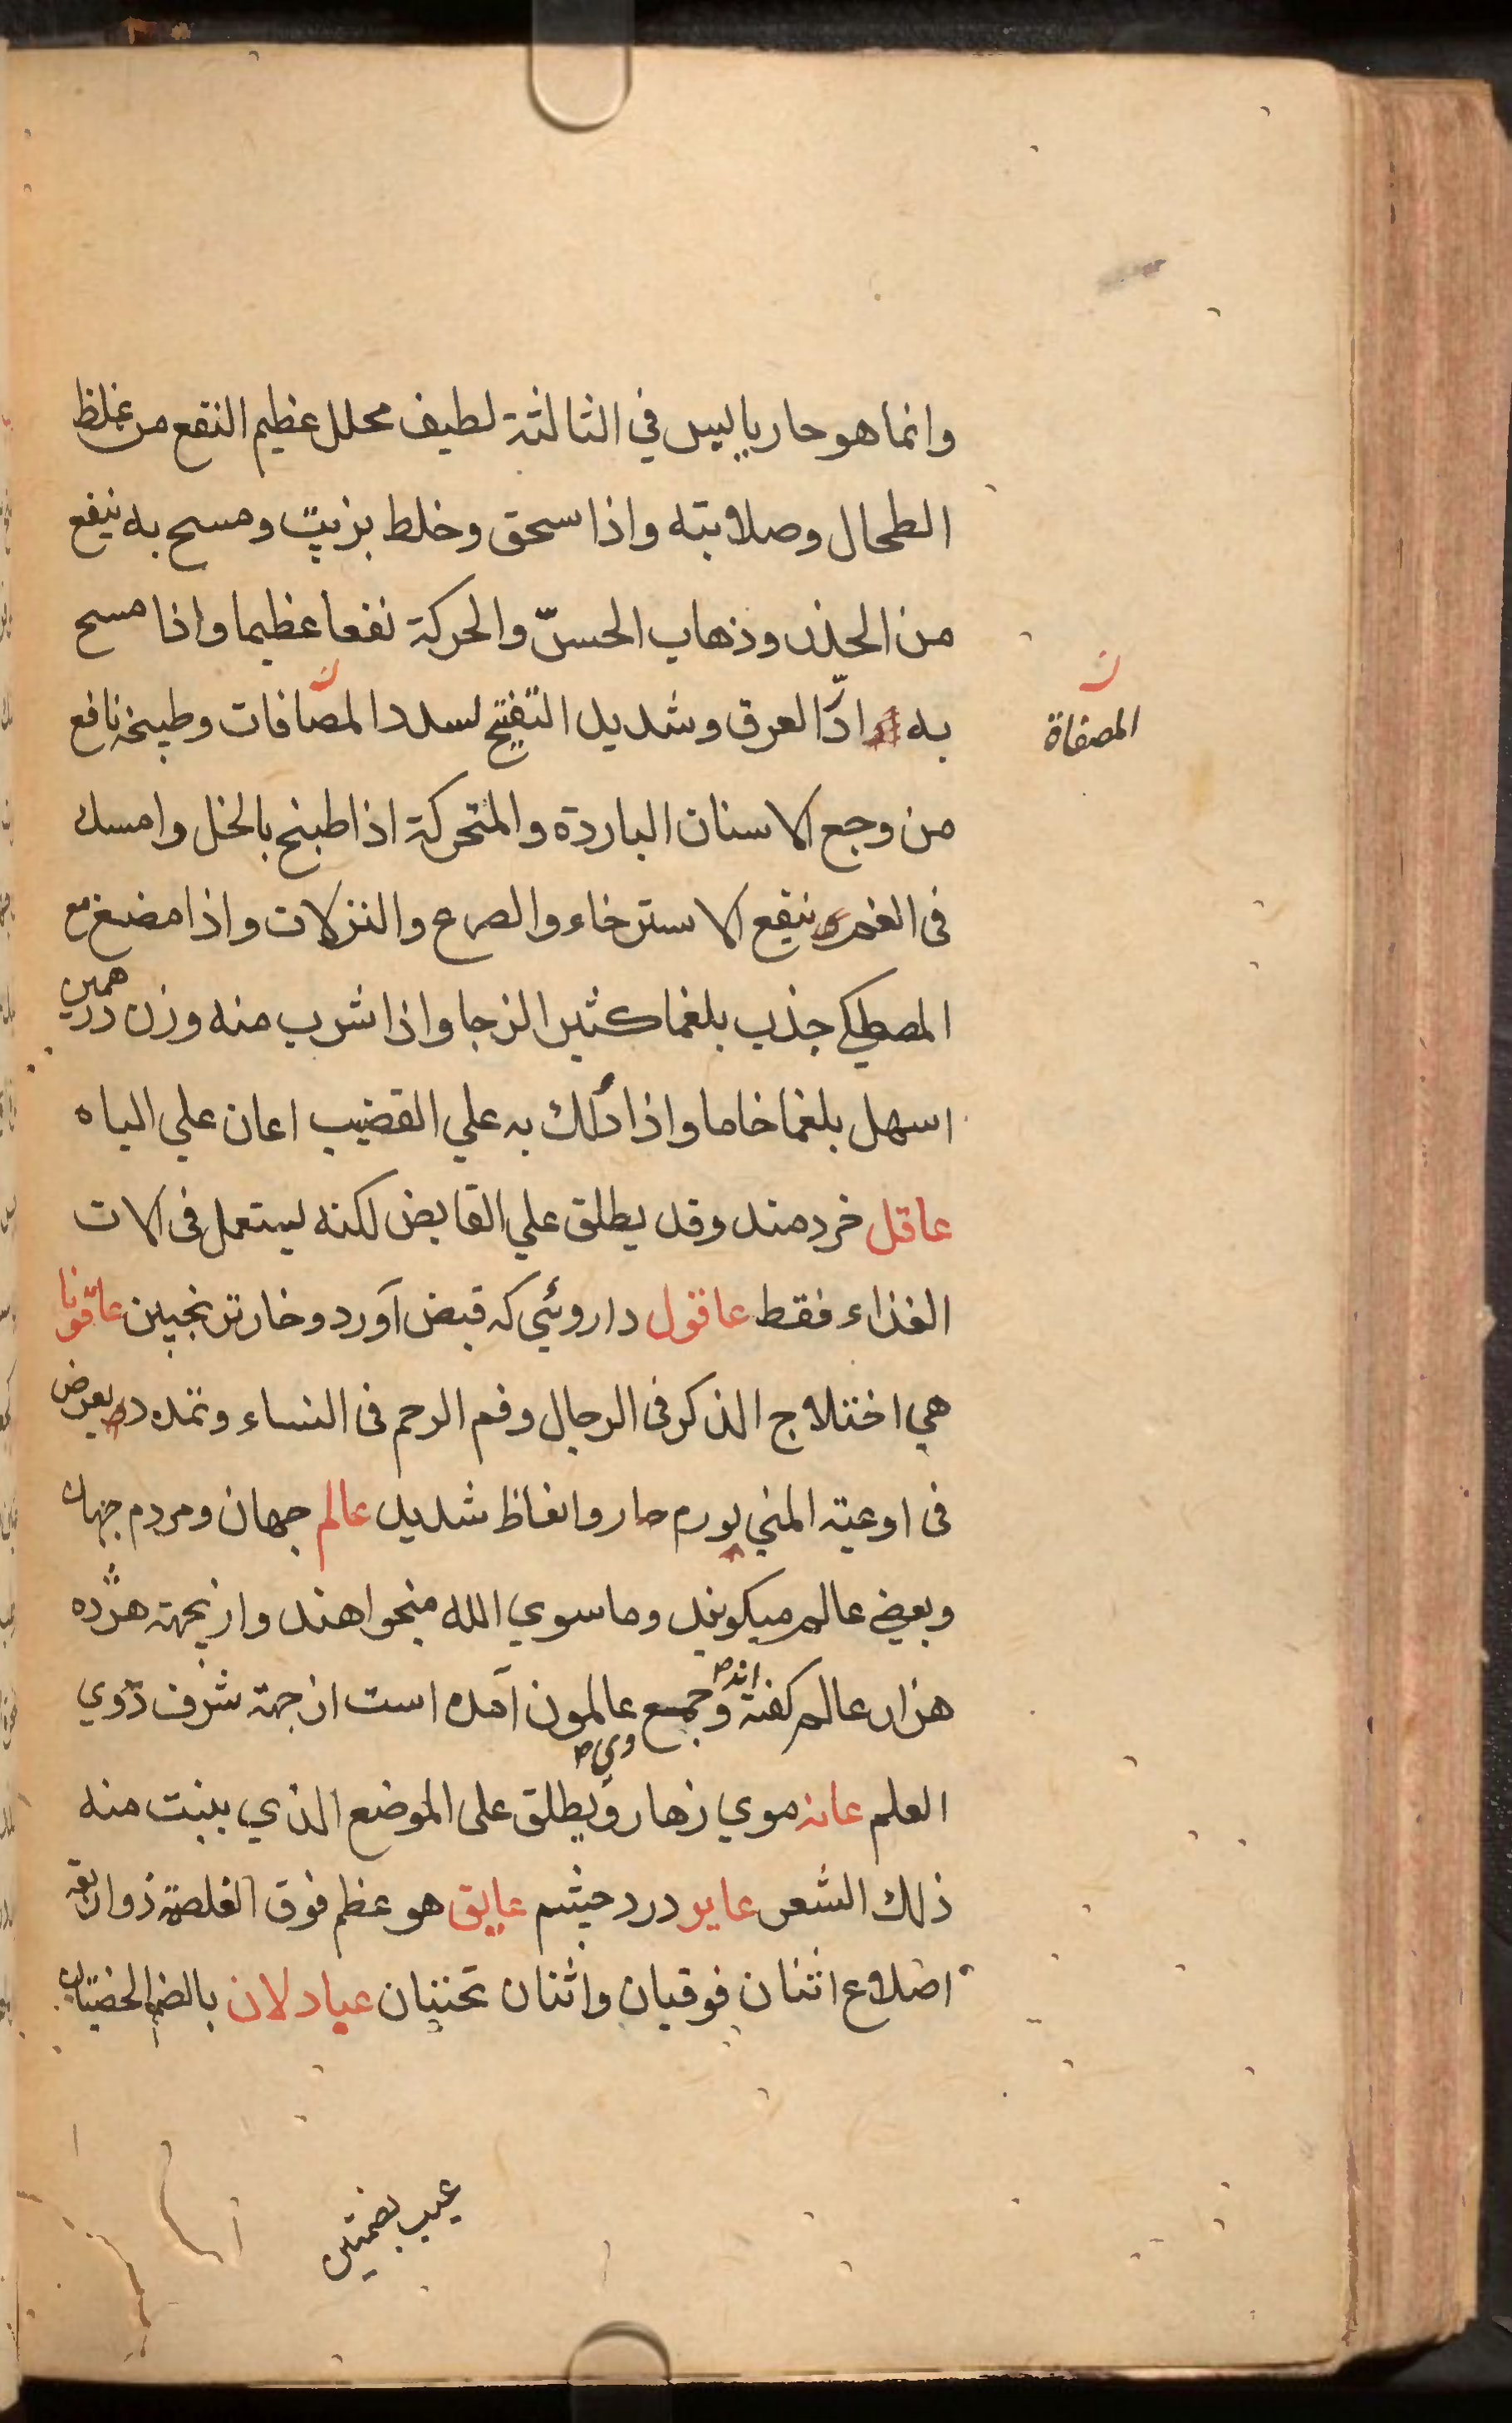 وانما هو حار يابس في الثالثة لطيف محلل عظيم النفع من غلظ
الطحال وصلابته واذا سحق وخلط بزيت ومسح به ينفع
من الخدر وذهاب الحسّ والحركة نفعا عظيما واذا مسح
به ادرّ العرق وشديد التفتيح لسدد المصافات وطبيخه نافع
المصفاة
من وجع الاسنان الباردة والمتحركة اذا طبخ بالخل وامسك
فى الفم وينفع الاسترخاء والصرع والنزلات واذا مضغ مع
المصطكي جذب بلغما كثيرا لزجا واذا شرب منه وزن درهمين
اسهل بلغما خاما واذا دُلك به علي القضيب اعان علي الباه
عاقل خردمند وقد يطلق علي القابض لكنه يستعمل فى الات
الغذاء فقط عاقول داروئي كه قبض آورد وخار ترنجبين عاقونا
هي اختلاج الذكر فى الرجال وفم الرحم فى النساء وتمدد يعرض
فى اوعية المني بورم حار وانعاظ شديد عالم جهان ومردم جهان
وبعضي عالم ميكويند وما سوي الله ميخواهند وازيجهة هژده
هزار عالم كفته اند وجمع وي عالمون آمده است از جهة شرف ذوي
العلم عانه موي زهار ويطلق على الموضع الذي ينبت منه
ذلك الشعر عاير درد چشم عايق هو عظم فوق الغلصمة ذو اربعة
اضلاع اثنان فوقيان واثنان تحتيان عبادلان بالضم الخصيتان
عيب بضمتين